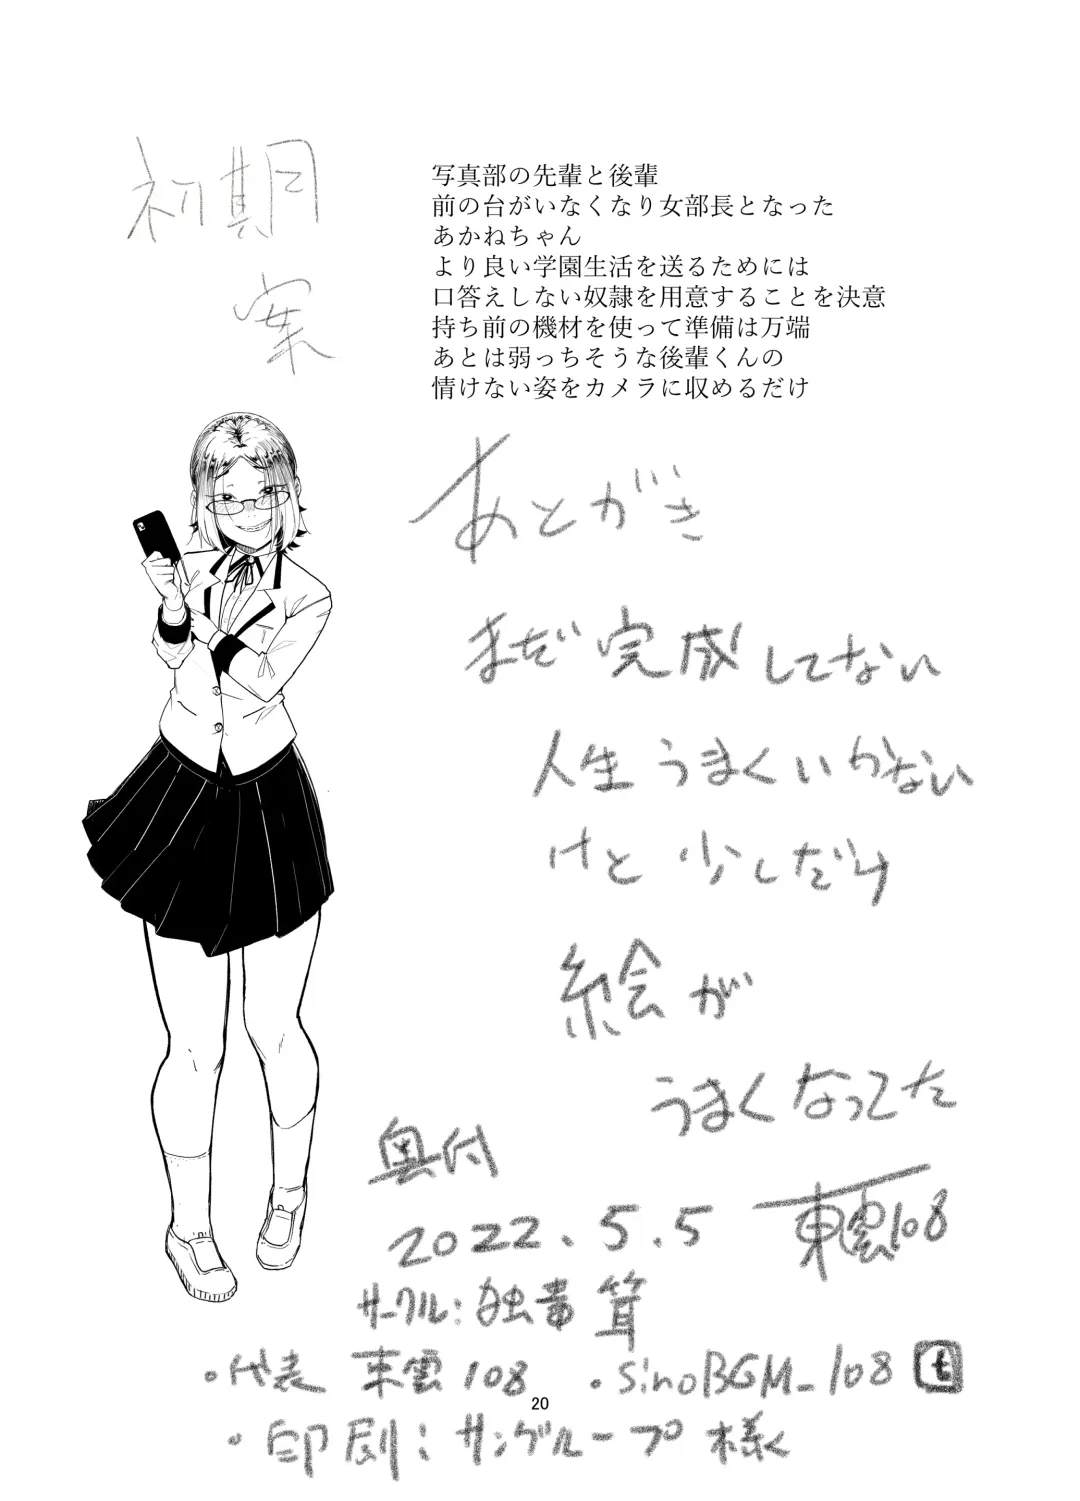 初期
案
写真部の先輩と後輩
前の台がいなくなり女部長となった
あかねちゃん
より良い学園生活を送るためには
口答えしない奴隷を用意することを決意
持ち前の機材を使って準備は万端
あとは弱っちそうな後輩くんの
情けない姿をカメラに収めるだけ
あとがき
まだ完成してない
人生うまくいかない
けど少しだけ
絵が
うまくなってた
奥付
2022.5.5 東雲108
サークル:独毒茸
・代表 東雲108 ・SinoBGM_108 t
20
・印刷:サングループ様く